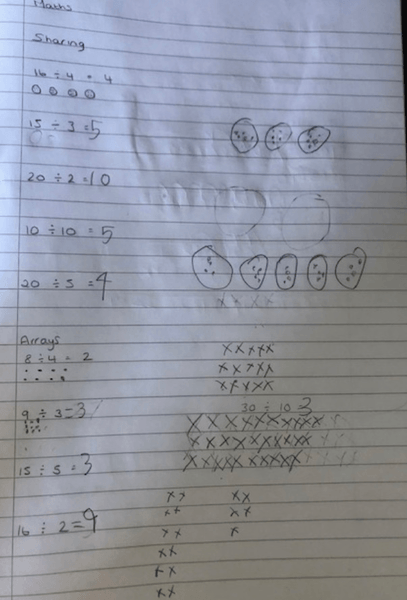 Maths
Sharing
16 ÷ 4 = 4
15 ÷ 3 = 5
20 ÷ 2 = 10
10 ÷ 10 = 5
20 ÷ 5 = 4
Arrays
8 ÷ 4 = 2
9 ÷ 3 = 3
30 ÷ 10 = 3
15 ÷ 5 = 3
16 ÷ 2 = 9